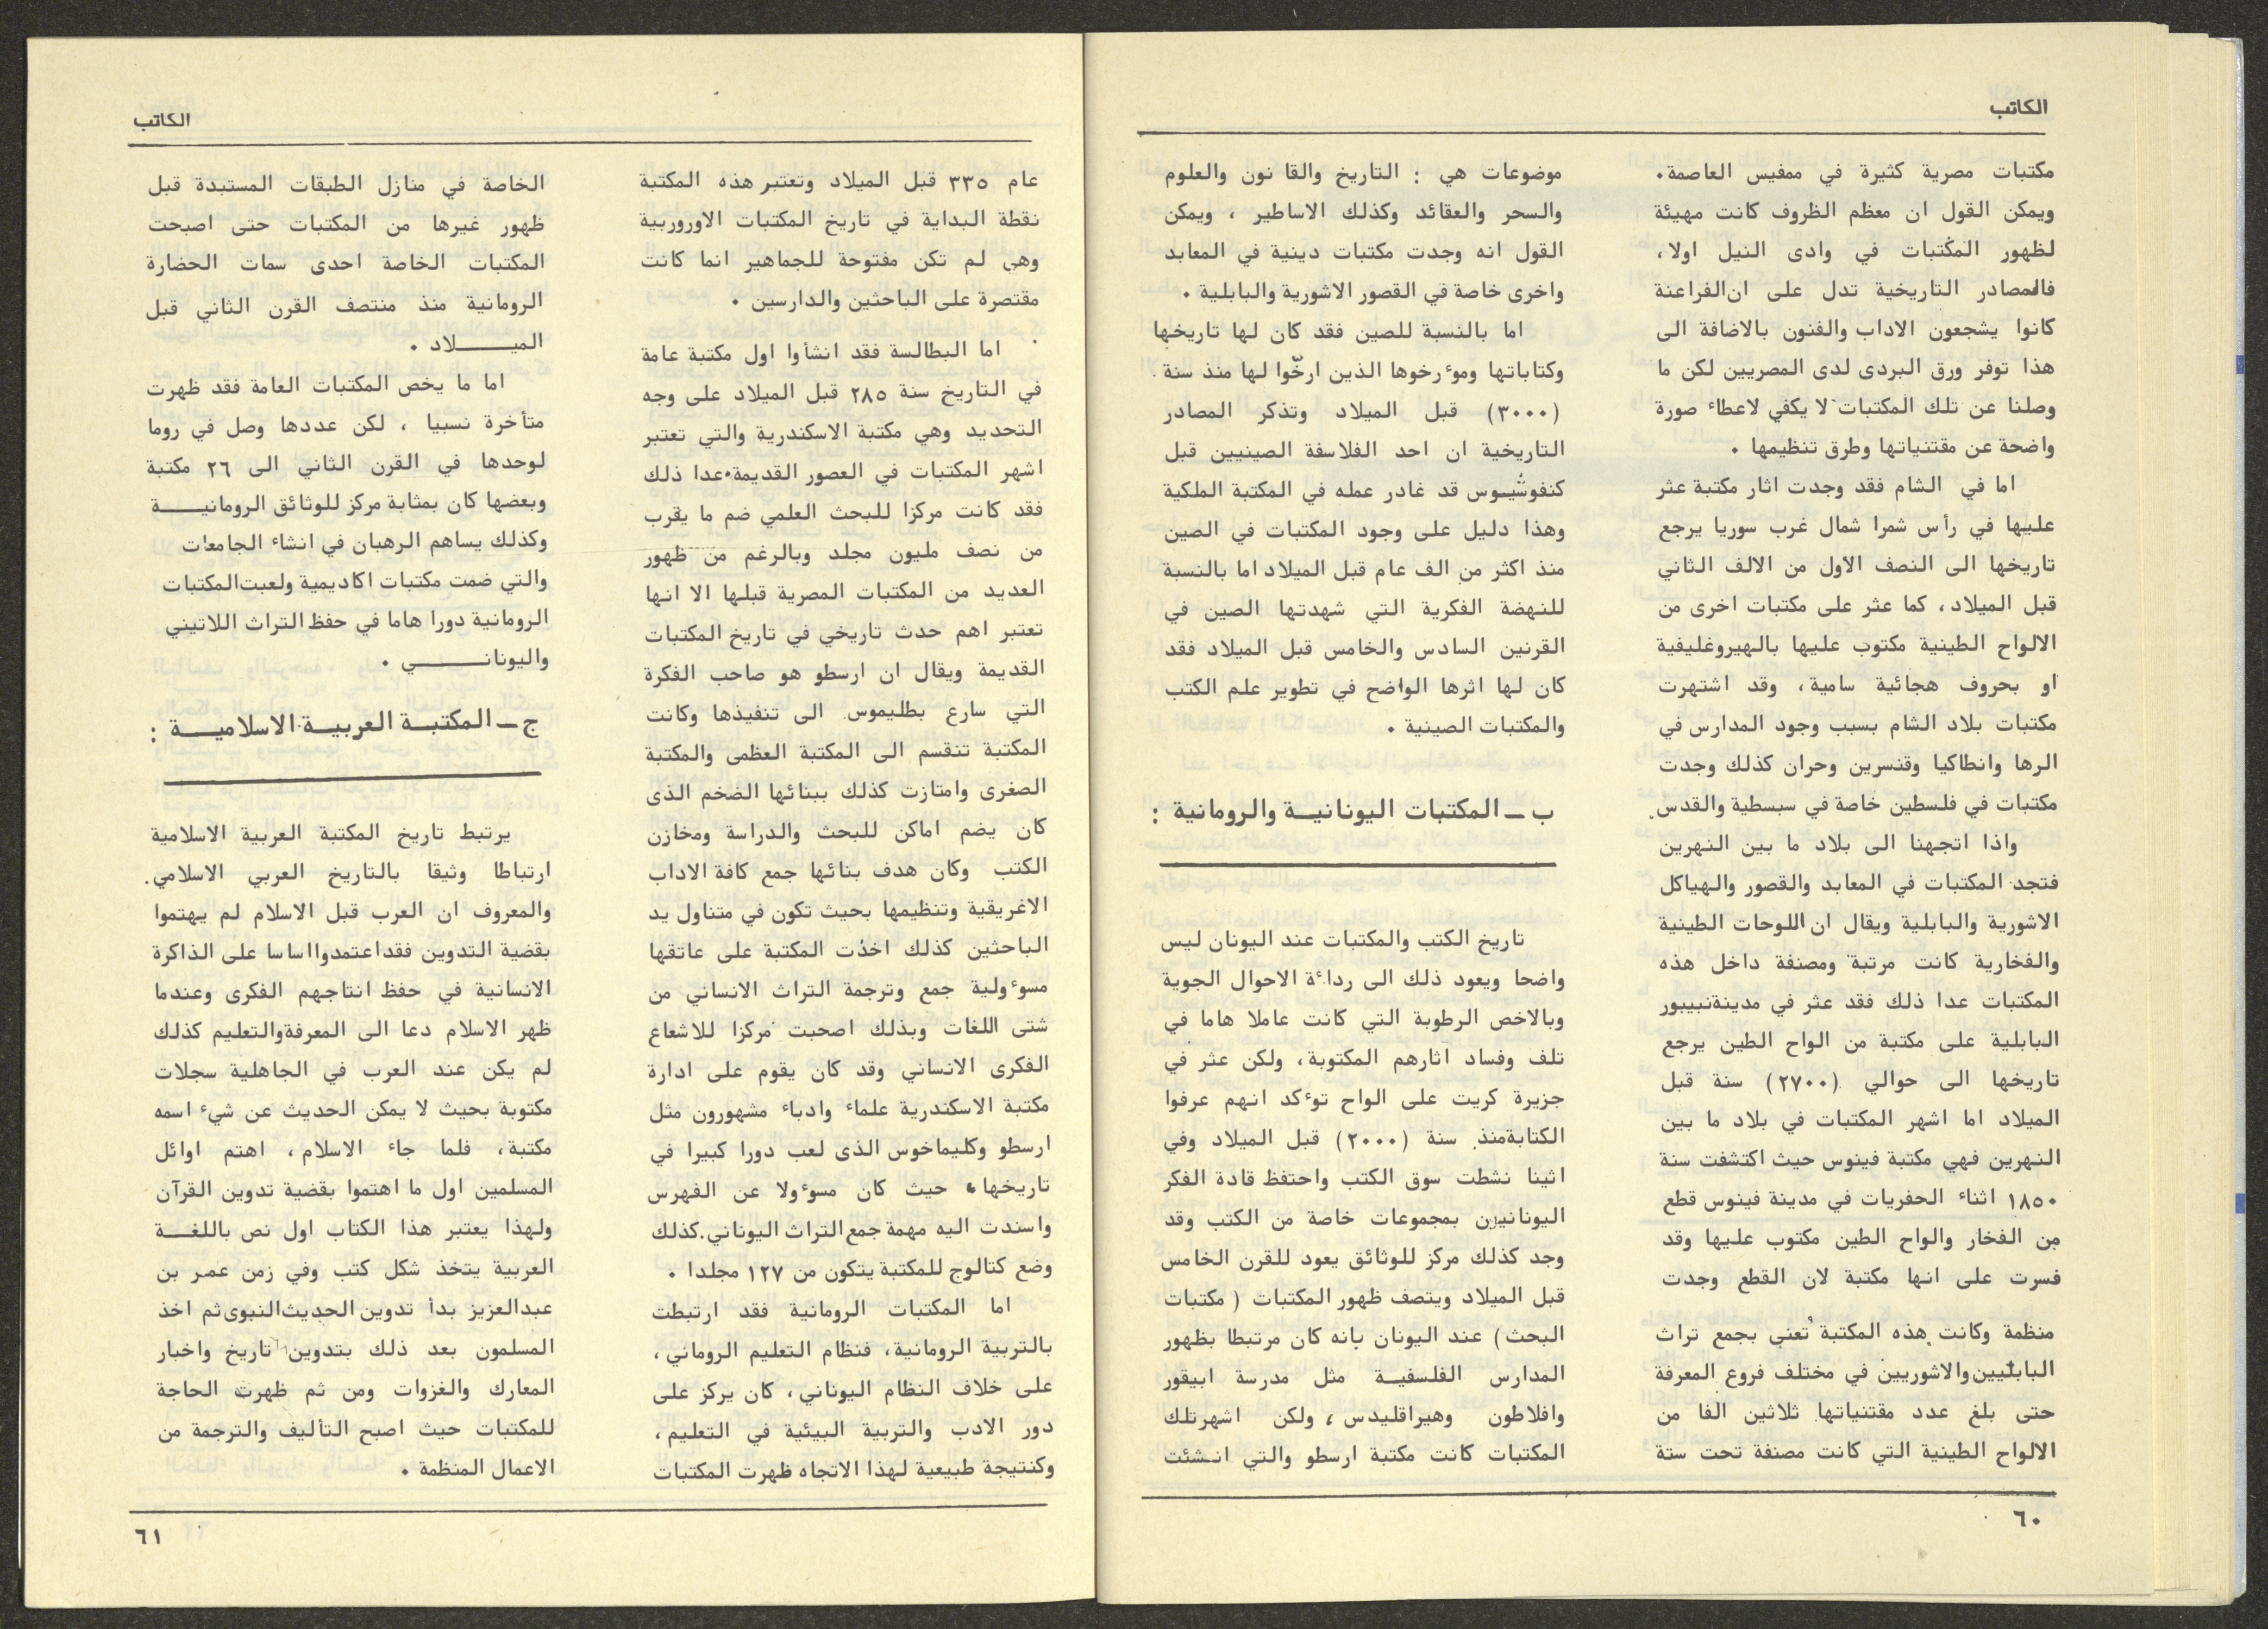 الكاتب
مكتبات مصرية كثيرة في ممفيس العاصمة.
ويمكن القول ان معظم الظروف كانت مهيئة
لظهور المكتبات في وادى النيل اولا،
فالمصادر التاريخية تدل على ان الفراعنة
كانوا يشجعون الاداب والفنون بالاضافة الى
هذا توفر ورق البردى لدى المصريين لكن ما
وصلنا عن تلك المكتبات لا يكفي لاعطاء صورة
واضحة عن مقتنياتها وطرق تنظيمها .
اما في الشام فقد وجدت اثار مكتبة عثر
عليها في رأس شمرا شمال غرب سوريا يرجع
تاريخها الى النصف الاول من الالف الثاني
قبل الميلاد، كما عثر على مكتبات اخرى من
الالواح الطينية مكتوب عليها بالهيروغليفية
او بحروف هجائية سامية، وقد اشتهرت
مكتبات بلاد الشام بسبب وجود المدارس في
الرها وانطاكيا وقنسرين وحران كذلك وجدت
مكتبات في فلسطين خاصة في سبسطية والقدس.
واذا اتجهنا الى بلاد ما بين النهرين
فتجد المكتبات في المعابد والقصور والهياكل
الاشورية والبابلية ويقال ان اللوحات الطينية
والفخارية كانت مرتبة ومصنفة داخل هذه
المكتبات عدا ذلك فقد عثر في مدينة نيبور
البابلية على مكتبة من الواح الطين يرجع
تاريخها الى حوالي (٢٧٠٠) سنة قبل
الميلاد اما اشهر المكتبات في بلاد ما بين
النهرين فهي مكتبة فينوس حيث اكتشفت سنة
١٨٥٠ اثناء الحفريات في مدينة فينوس قطع
من الفخار والواح الطين مكتوب عليها وقد
فسرت على انها مكتبة لان القطع وجدت
منظمة وكانت هذه المكتبة تعنى بجمع تراث
البابليين والاشوريين في مختلف فروع المعرفة
حتى بلغ عدد مقتنياتها ثلاثين الفا من
الالواح الطينية التي كانت مصنفة تحت ستة
موضوعات هي : التاريخ والقا نون والعلوم
والسحر والعقائد وكذلك الاساطير ، ويمكن
القول انه وجدت مكتبات دينية في المعابد
واخرى خاصة في القصور الاشورية والبابلية .
اما بالنسبة للصين فقد كان لها تاريخها
وكتاباتها ومؤرخوها الذين ارخّوا لها منذ سنة
(٣٠٠٠) قبل الميلاد وتذكر المصادر
التاريخية ان احد الفلاسفة الصينيين قبل
كنفوشيوس قد غادر عمله في المكتبة الملكية
وهذا دليل على وجود المكتبات في الصين
منذ اكثر من الف عام قبل الميلاد اما بالنسبة
للنهضة الفكرية التي شهدتها الصين في
القرنين السادس والخامس قبل الميلاد فقد
كان لها اثرها الواضح في تطوير علم الكتب
والمكتبات الصينية .
ب ــ المكتبات اليونانيــة والرومانية :
تاريخ الكتب والمكتبات عند اليونان ليس
واضحا ويعود ذلك الى رداءة الاحوال الجوية
وبالاخص الرطوبة التي كانت عاملا هاما في
تلف وفساد اثارهم المكتوبة، ولكن عثر في
جزيرة كريت على الواح تؤكد انهم عرفوا
الكتابة منذ سنة (٢٠٠٠) قبل الميلاد وفي
اثينا نشطت سوق الكتب واحتفظ قادة الفكر
اليونانيون بمجموعات خاصة من الكتب وقد
وجد كذلك مركز للوثائق يعود للقرن الخامس
قبل الميلاد ويتصف ظهور المكتبات ( مكتبات
البحث) عند اليونان بانه كان مرتبطا بظهور
المدارس الفلسفيــة مثل مدرسة ابيقور
وافلاطون وهيراقليدس، ولكن اشهر تلك
المكتبات كانت مكتبة ارسطو والتي انشئت
٦٠
الكاتب
عام ٣٣٥ قبل الميلاد وتعتبر هذه المكتبة
نقطة البداية في تاريخ المكتبات الاوروربية
وهي لم تكن مفتوحة للجماهير انما كانت
مقتصرة على الباحثين والدارسين .
اما البطالسة فقد انشأوا اول مكتبة عامة
في التاريخ سنة ٢٨٥ قبل الميلاد على وجه
التحديد وهي مكتبة الاسكندرية والتي تعتبر
اشهر المكتبات في العصور القديمة.عدا ذلك
فقد كانت مركزا للبحث العلمي ضم ما يقرب
من نصف مليون مجلد وبالرغم من ظهور
العديد من المكتبات المصرية قبلها الا انها
تعتبر اهم حدث تاريخي في تاريخ المكتبات
القديمة ويقال ان ارسطو هو صاحب الفكرة
التي سارع بطليموس الى تنفيذها وكانت
المكتبة تنقسم الى المكتبة العظمى والمكتبة
الصغرى وامتازت كذلك ببنائها الضخم الذى
كان يضم اماكن للبحث والدراسة ومخازن
الكتب وكان هدف بنائها جمع كافة الاداب
الاغريقية وتنظيمها بحيث تكون في متناول يد
الباحثين كذلك اخذت المكتبة على عاتقها
مسؤولية جمع وترجمة التراث الانساني من
شتى اللغات وبذلك اصحبت مركزا للاشعاع
الفكرى الانساني وقد كان يقوم على ادارة
مكتبة الاسكندرية علماء وادباء مشهورون مثل
ارسطو وكليماخوس الذى لعب دورا كبيرا في
تاريخها، حيث كان مسؤولا عن الفهرس
واسندت اليه مهمة جمع التراث اليوناني.كذلك
وضع كتالوج للمكتبة يتكون من ١٢٧ مجلدا .
اما المكتبات الرومانية فقد ارتبطت
بالتربية الرومانية، فنظام التعليم الروماني،
على خلاف النظام اليوناني، كان يركز على
دور الادب والتربية البيئية في التعليم،
وكنتيجة طبيعية لهذا الاتجاه ظهرت المكتبات
الخاصة في منازل الطبقات المستبدة قبل
ظهور غيرها من المكتبات حتى اصبحت
المكتبات الخاصة احدى سمات الحضارة
الرومانية منذ منتصف القرن الثاني قبل
الميـــــلاد .
اما ما يخص المكتبات العامة فقد ظهرت
متأخرة نسبيا ، لكن عددها وصل في روما
لوحدها في القرن الثاني الى ٢٦ مكتبة
وبعضها كان بمثابة مركز للوثائق الرومانيــــة
وكذلك يساهم الرهبان في انشاء الجامعات
والتي ضمت مكتبات اكاديمية ولعبت المكتبات
الرومانية دورا هاما في حفظ التراث اللاتيني
واليونانـــــــي .
ج ــ المكتبــة العربيــة الاسلاميــــة :
يرتبط تاريخ المكتبة العربية الاسلامية
ارتباطا وثيقا بالتاريخ العربي الاسلامي.
والمعروف ان العرب قبل الاسلام لم يهتموا
بقضية التدوين فقد اعتمدوا اساسا على الذاكرة
الانسانية في حفظ انتاجهم الفكرى وعندما
ظهر الاسلام دعا الى المعرفة والتعليم كذلك
لم يكن عند العرب في الجاهلية سجلات
مكتوبة بحيث لا يمكن الحديث عن شيء اسمه
مكتبة، فلما جاء الاسلام، اهتم اوائل
المسلمين اول ما اهتموا بقضية تدوين القرآن
ولهذا يعتبر هذا الكتاب اول نص باللغــــة
العربية يتخذ شكل كتب وفي زمن عمر بن
عبد العزيز بدأ تدوين الحديث النبوى ثم اخذ
المسلمون بعد ذلك بتدوين تاريخ واخبار
المعارك والغزوات ومن ثم ظهرت الحاجة
للمكتبات حيث اصبح التأليف والترجمة من
الاعمال المنظمة .
٦١